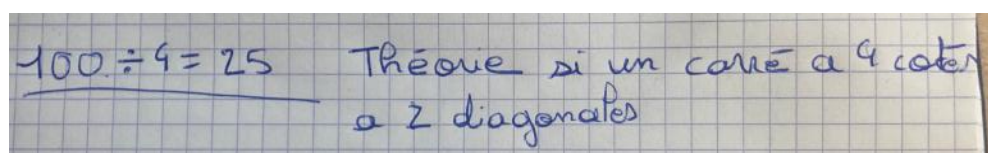 100 ÷ 4 = 25 Théorie si un carré a 4 cotes
a 2 diagonales